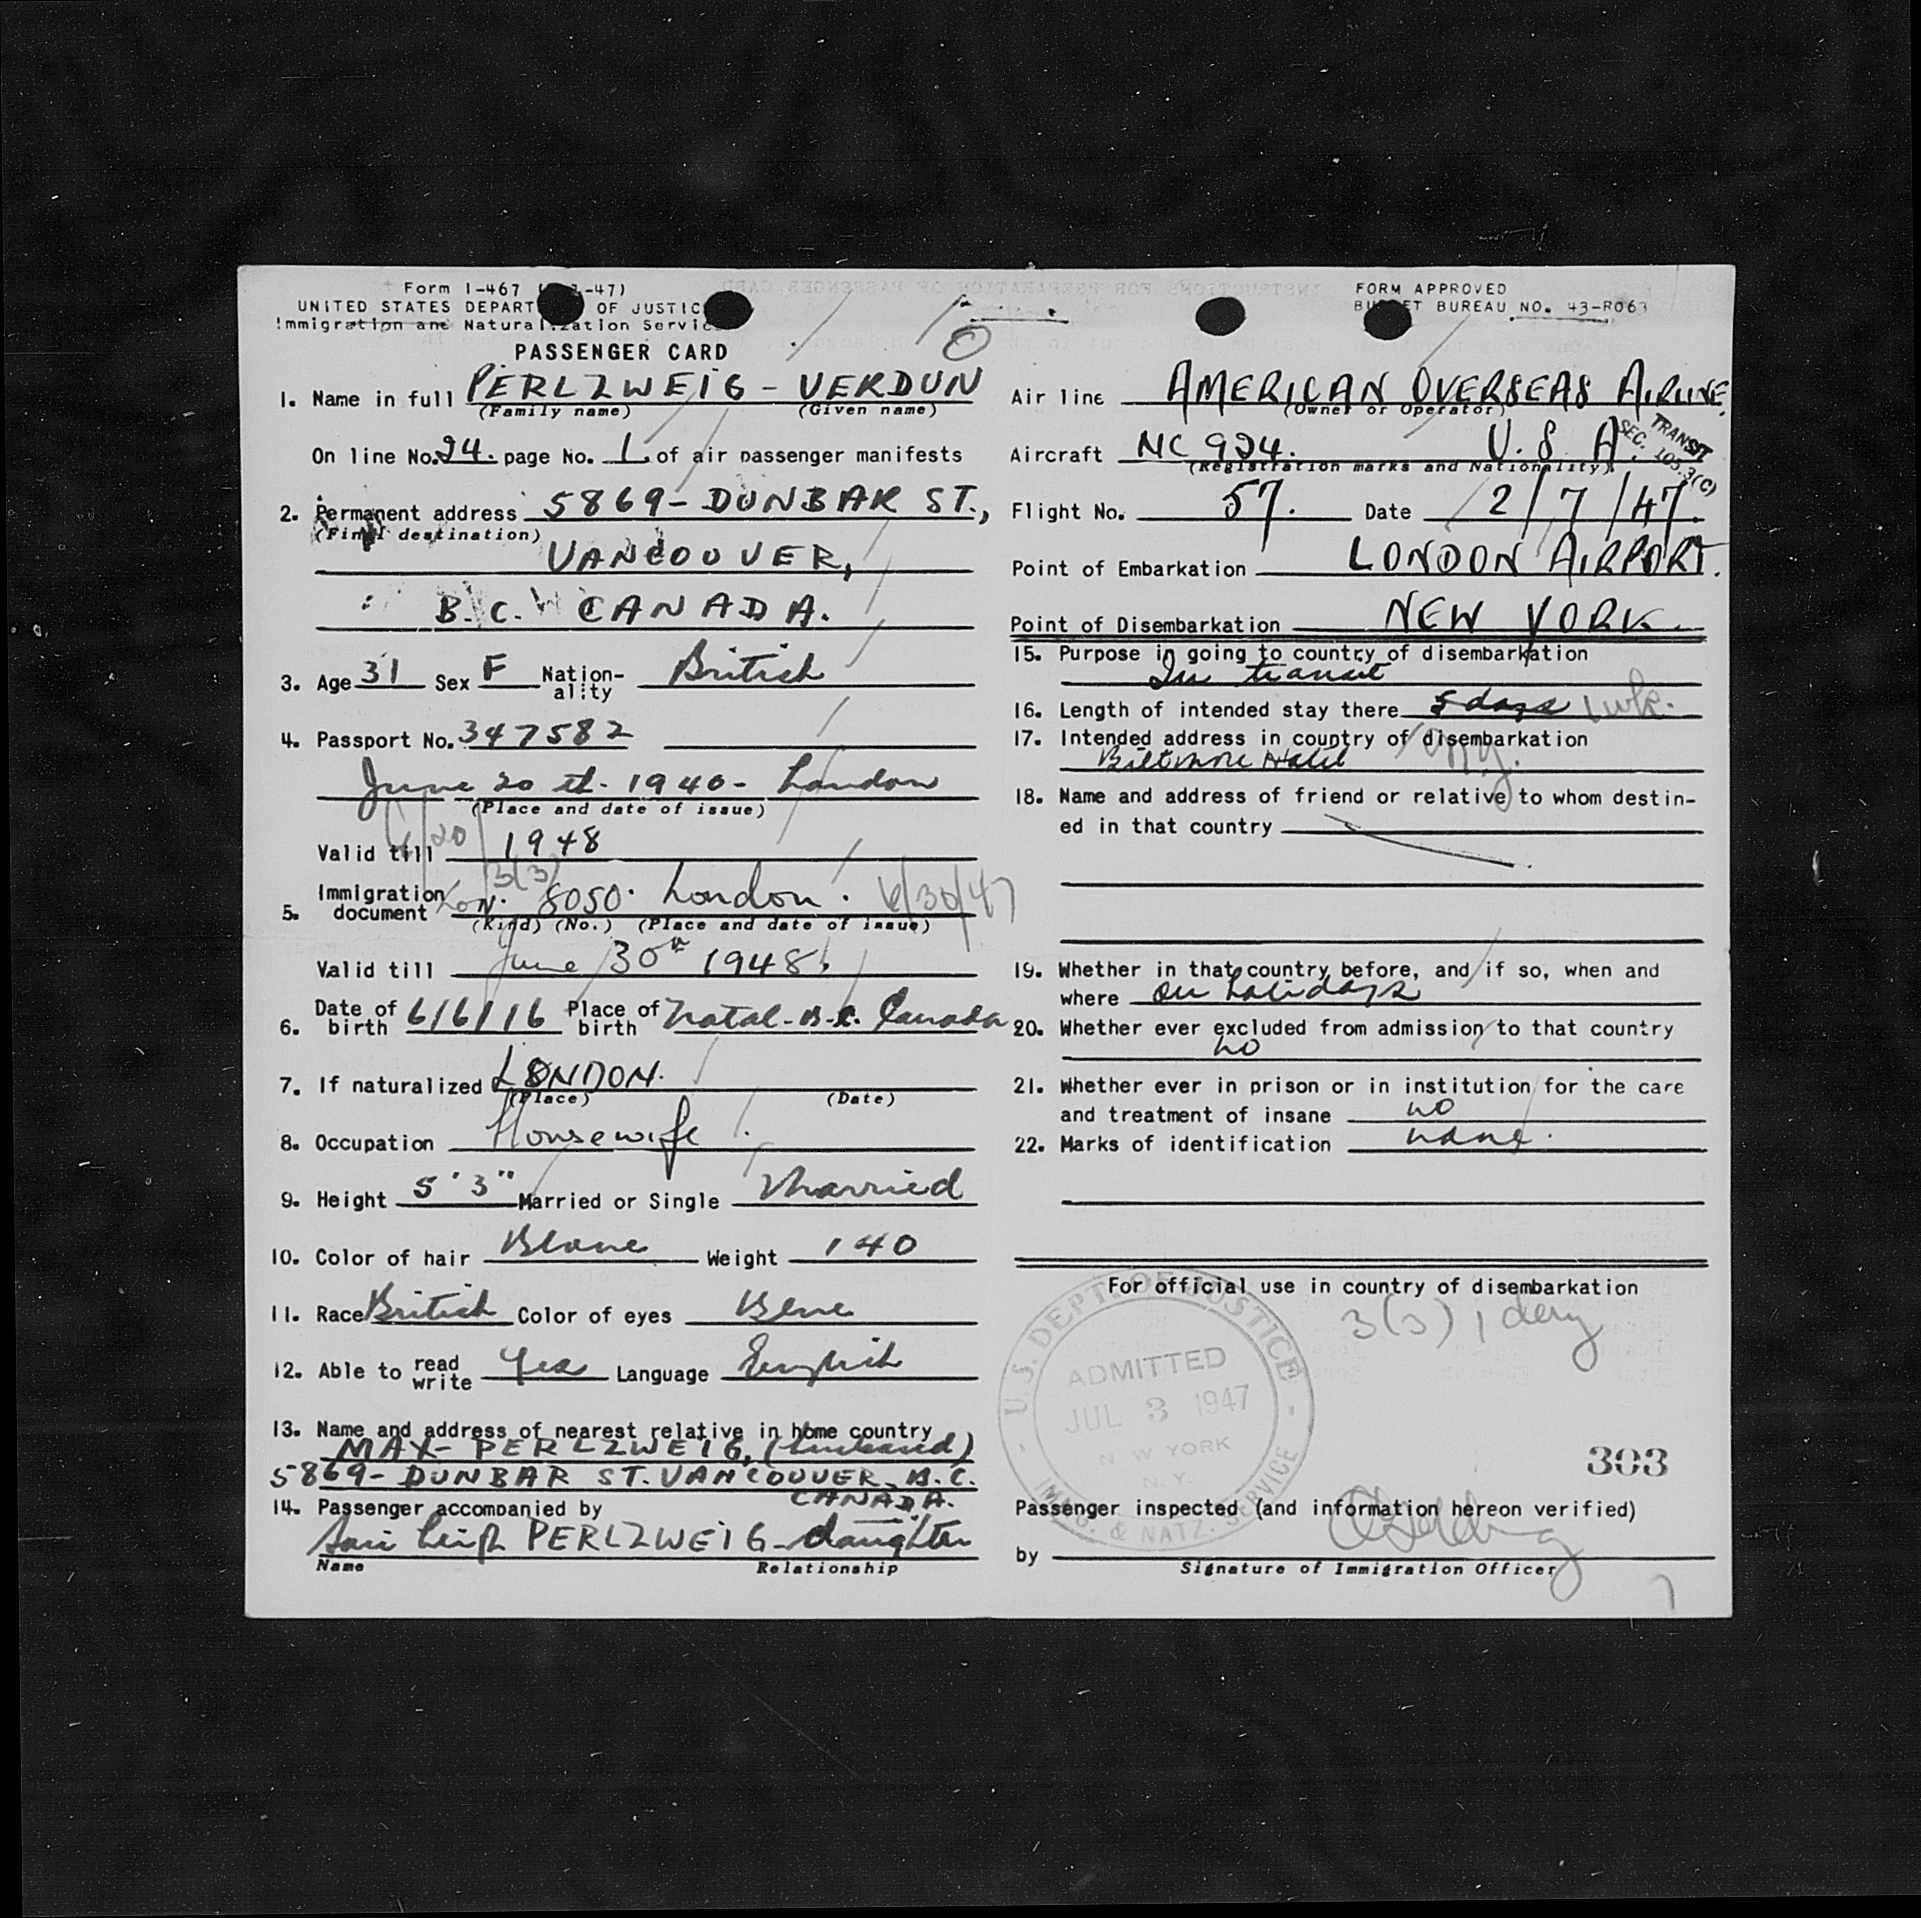 Form I-467 -47)
UNITED STATES DEPART OF JUSTIC
Immigration and Naturalization Servic
PASSENGER CARD
1. Name in full PERLZWEIG - VERDUN
(Family name) (Given name)
On line No. 24. page No. 1. of air passenger manifests
2. Permanent address 5869 - DUNBAR ST.,
(Final destination)
VANCOUVER,
B.C. CANADA.
3. Age 31 Sex F Nation-ality British
4. Passport No. 347582
June 20 th. 1940 - London
(Place and date of issue)
6/20
Valid till 1948
3(3)
5. Immigration document Non. 8050. London. 6/30/47
(Kind) (No.) (Place and date of issue)
Valid till June 30th 1948.
6. Date of birth 6/6/16 Place of birth Natal - B.C. Canada
7. If naturalized LONDON.
(Place) (Date)
8. Occupation Housewife.
9. Height 5'3" Married or Single Married
10. Color of hair Weight 140
11. Race British Color of eyes Blue
12. Able to read write Yes Language English
13. Name and address of nearest relative in home country
MAX - PERLZWEIG, (husband)
5869 - DUNBAR ST. VANCOUVER, B.C.
CANADA.
14. Passenger accompanied by
PERLZWEIG - daughter
Name Relationship
FORM APPROVED
BU ET BUREAU NO. 43-R063
Air line AMERICAN OVERSEAS AIRLINE.
(Owner or Operator)
TRANSIT
SEC. 105.3(C)
Aircraft NC 924. U.S.A.
(Registration marks and Nationality)
Flight No. 57. Date 2/7/47.
Point of Embarkation LONDON AIRPORT.
Point of Disembarkation NEW YORK.
15. Purpose in going to country of disembarkation
In transit
16. Length of intended stay there 5 days 1 wk.
17. Intended address in country of disembarkation
Biltmore Hotel
18. Name and address of friend or relative to whom destin-
ed in that country
19. Whether in that country before, and if so, when and
where on holidays
20. Whether ever excluded from admission to that country
no
21. Whether ever in prison or in institution for the care
and treatment of insane no
22. Marks of identification none.
For official use in country of disembarkation
3(3) 1
U.S. DEPT. OF JUSTICE
ADMITTED
JUL 3 1947
NEW YORK
N.Y.
IMM. & NATZ. SERVICE
303
Passenger inspected (and information hereon verified)
by
Signature of Immigration Officer